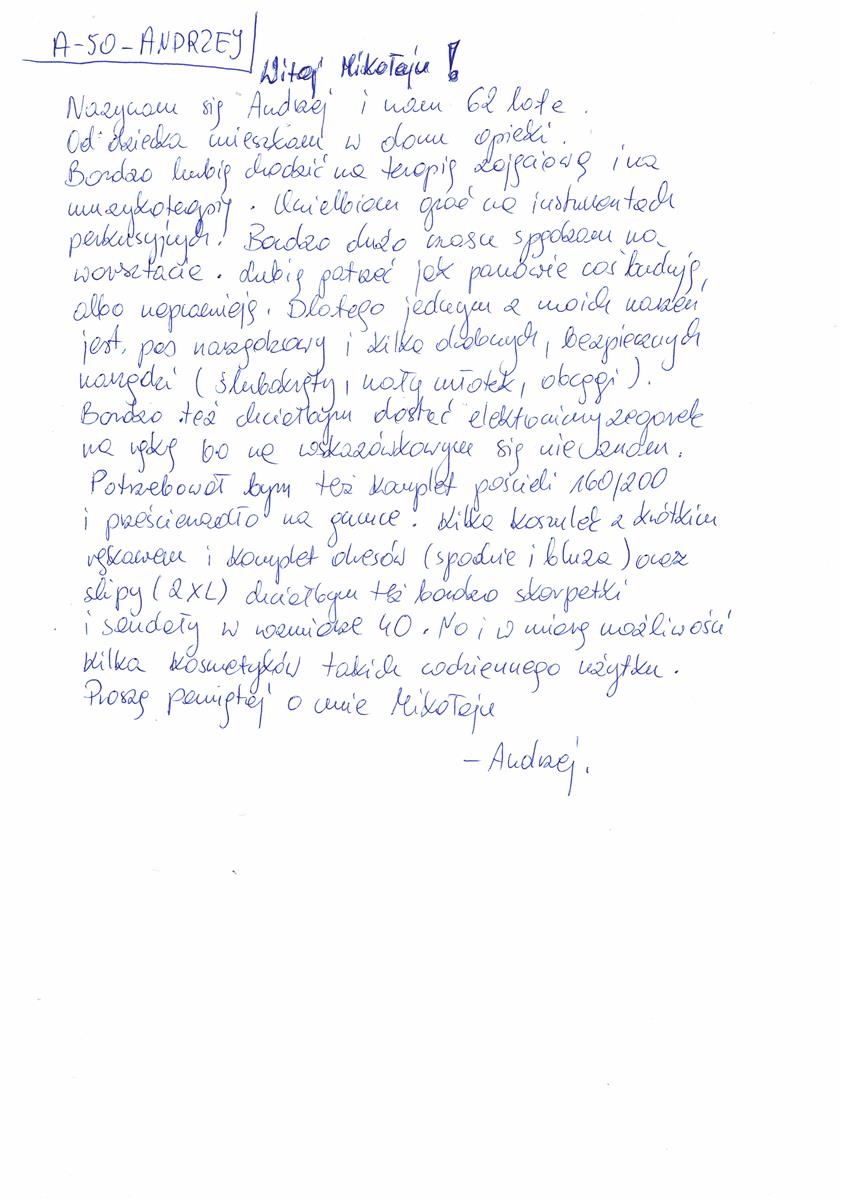 A-50-ANDRZEJ
Witaj Mikołaju!
Nazywam się Andrzej i mam 62 lata.
Od dziecka mieszkam w domu opieki.
Bardzo lubię chodzić na terapię zajęciową i na
muzykoterapię. Uwielbiam grać na instrumentach
perkusyjnych! Bardzo dużo czasu spędzam na
warsztacie. Lubię patrzeć jak panowie coś budują,
albo naprawiają. Dlatego jednym z moich marzeń
jest, pas narzędziowy i kilka drobnych, bezpiecznych
narzędzi (śrubokręty, mały młotek, obcęgi).
Bardzo też chciałbym dostać elektroniczny zegarek
na rękę bo na wskazówkowym się nie znam.
Potrzebował bym też komplet pościeli 160/200
i prześcieradło na gumce. Kilka koszulek z krótkim
rękawem i komplet dresów (spodnie i bluza) oraz
slipy (2XL) chciałbym też bardzo skarpetki
i sandały w rozmiarze 40. No i w miarę możliwości
kilka kosmetyków takich codziennego użytku.
Proszę pamiętaj o mnie Mikołaju
– Andrzej.